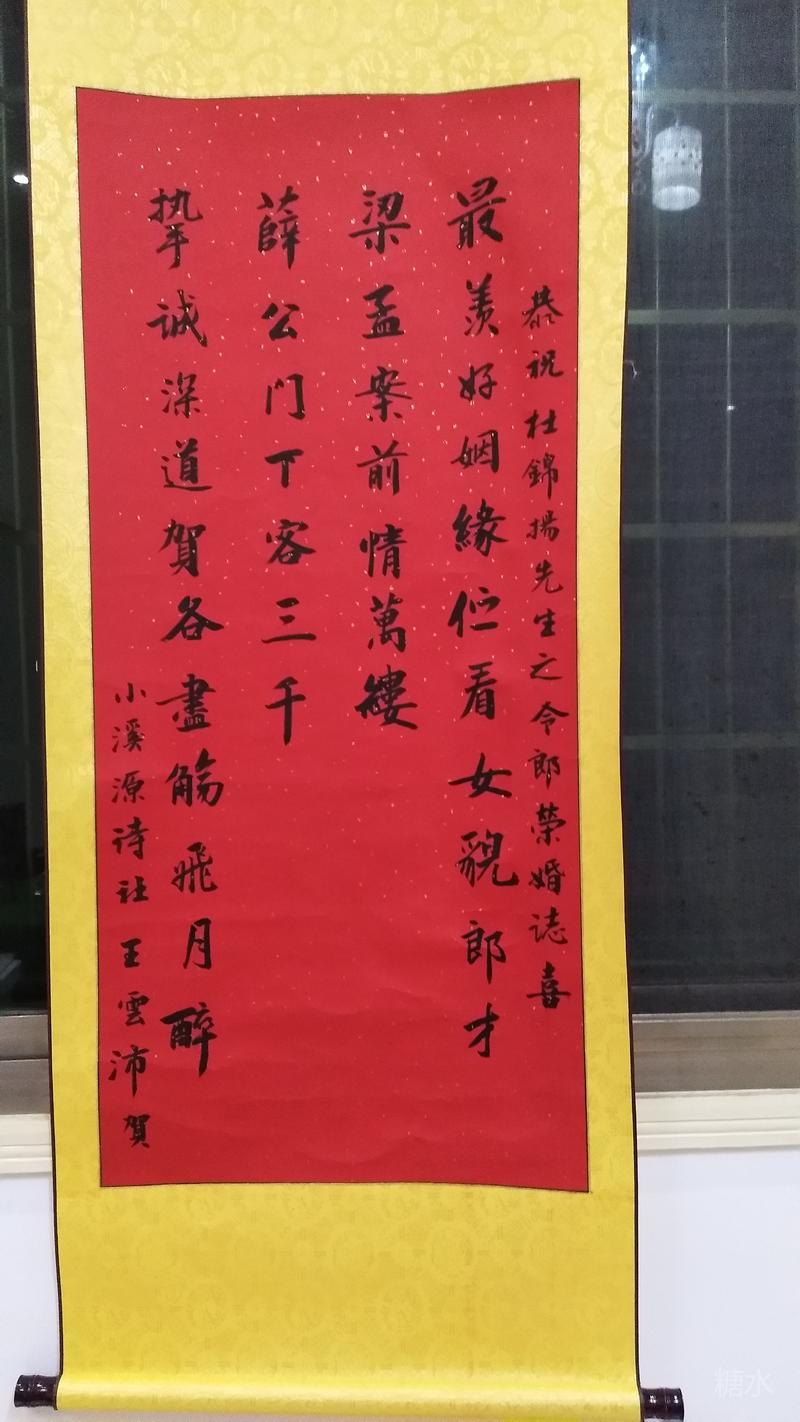 恭祝杜錦揚先生之令郎榮婚誌喜
最羡好姻緣但看女貌郎才
梁孟案前情萬縷
薛公门下客三千
挚诚深道賀各盡觞飛月醉
小溪源诗社王雲沛賀
糖水